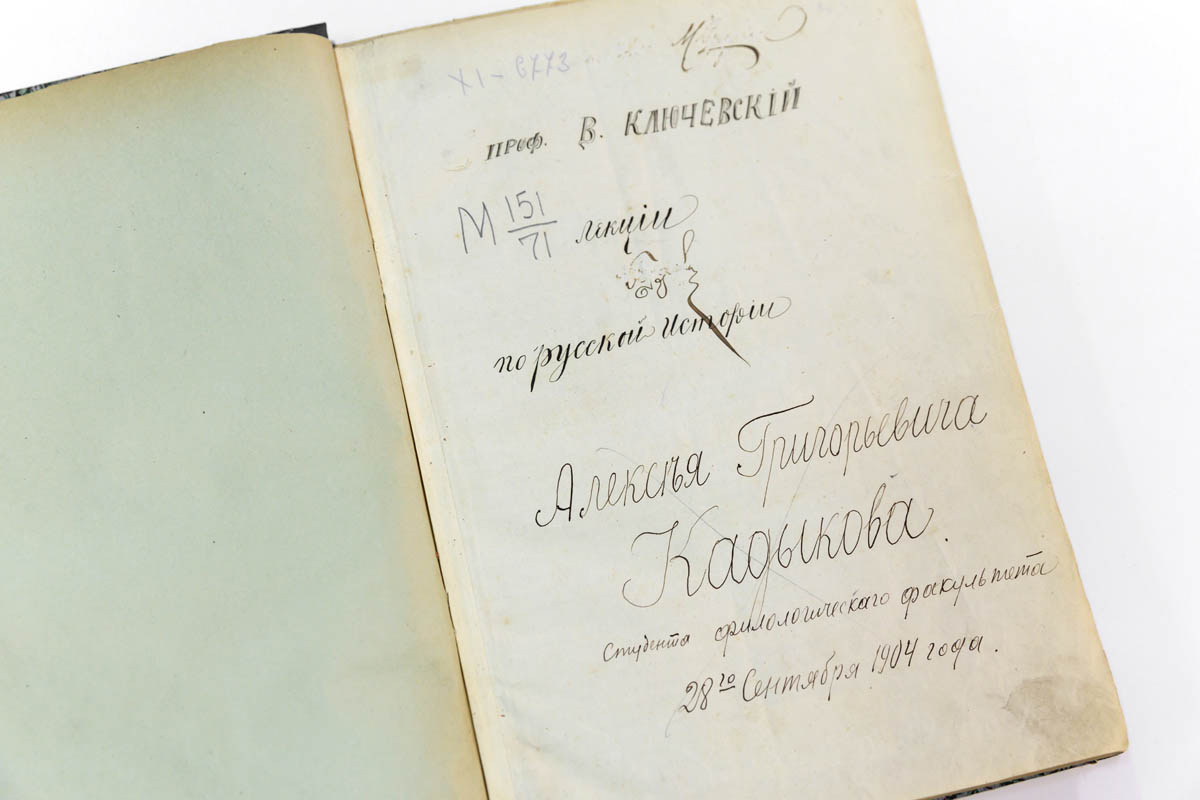 XI - 6773
проф. В. КЛЮЧЕВСКІЙ
М 151/71
лекціи
по русской Исторіи
Алексѣя Григорьевича
Кадыкова.
Студента филологическаго факультета
28го Сентября 1904 года.